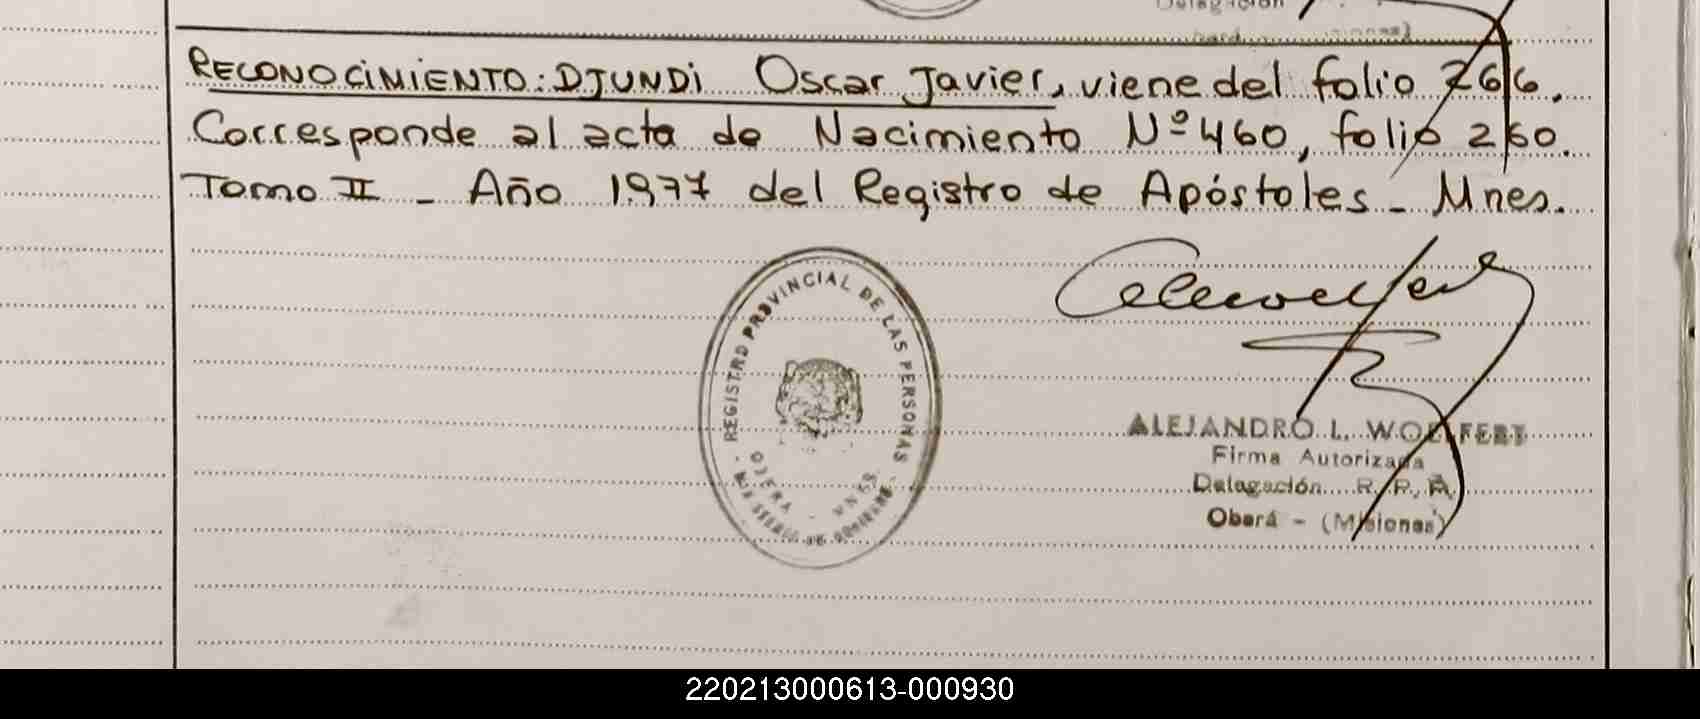 Delegación
RECONOCIMIENTO: DJUNDI Oscar Javier, viene del folio 266.
Corresponde al acta de Nacimiento Nº 460, folio 260.
Tomo II - Año 1977 del Registro de Apóstoles - Mnes.
REGISTRO PROVINCIAL DE LAS PERSONAS
OBERA - MNES
MINISTERIO DE GOBIERNO
ALEJANDRO L. WOLFFERT
Firma Autorizada
Delegación R. P. P.
Oberá - (Misiones)
220213000613-000930